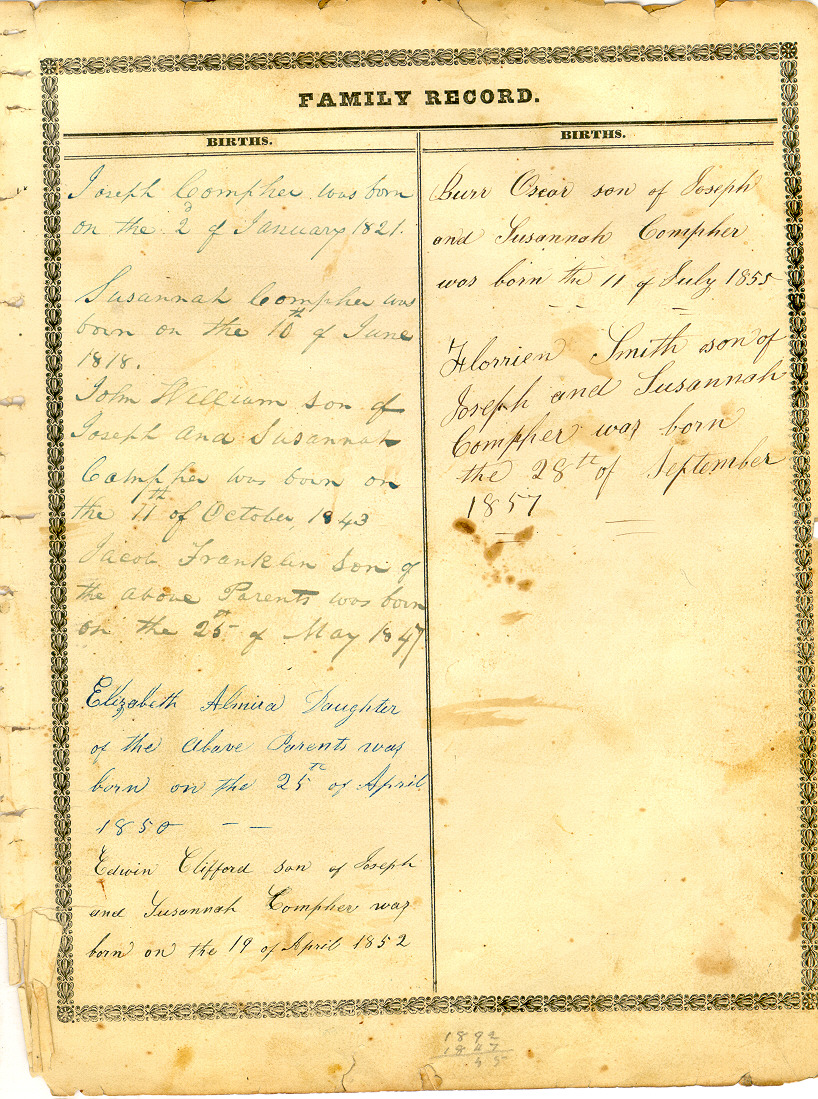 FAMILY RECORD.
BIRTHS.
Joseph Compher was born
on the 2d of January 1821.
Susannah Compher was
born on the 10th of June
1818.
John William son of
Joseph and Susannah
Compher was born on
the 11th of October, 1843
Jacob Franklin son of
the above Parents was born
on the 25th of May 1847
Elizabeth Almira Daughter
of the above Parents was
born on the 25th of April
1850
Edwin Clifford son of Joseph
and Susannah Compher was
born on the 19 of April 1852
BIRTHS.
Burr Oscar son of Joseph
and Susannah Compher
was born the 11 of July 1855
Florrien Smith son of
Joseph and Susannah
Compher was born
the 28th of September
1857
1892
1847
55